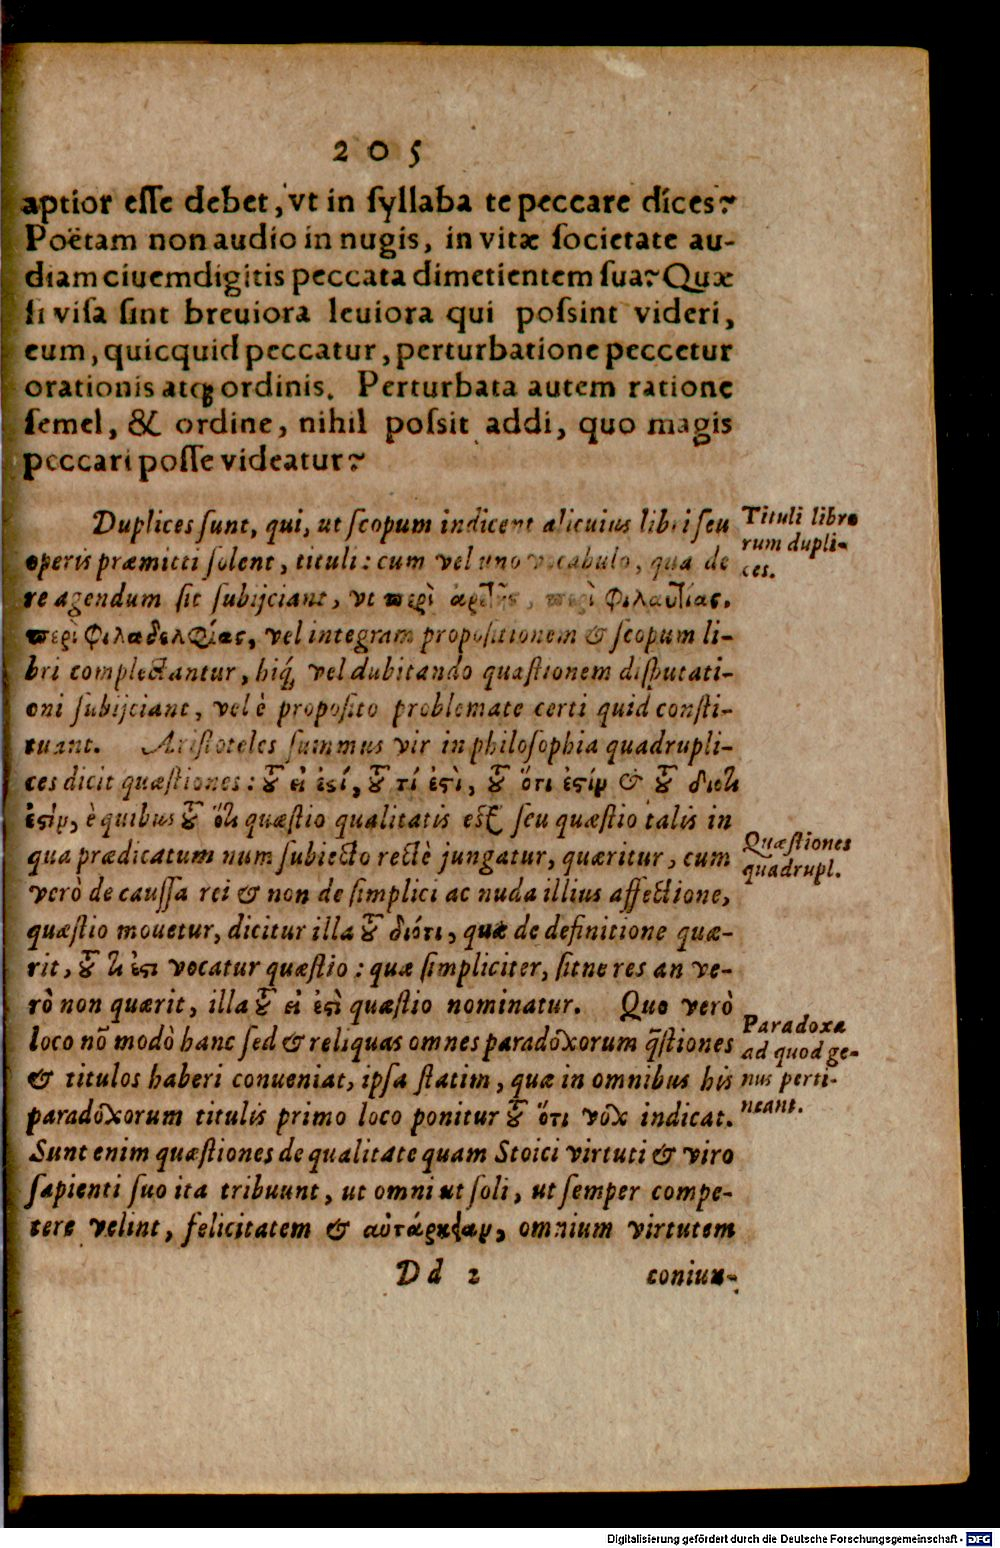 205
aptior esse debet, vt in syllaba te peccare dices?
Poëtam non audio in nugis, in vitæ societate au-
diam ciuem digitis peccata dimetientem sua? Quæ
si visa sint breuiora leuiora qui possint videri,
cum, quicquid peccatur, perturbatione peccetur
orationis atq; ordinis. Perturbata autem ratione
semel, & ordine, nihil possit addi, quo magis
peccari posse videatur?
Duplices sunt, qui, ut scopum indicent alicuius libri seu
operis præmitti solent, tituli: cum vel uno vocabulo, qua de
re agendum sit subijciant, vt περὶ ἀρετῆς, περὶ φιλαυτίας,
περὶ φιλαδελφίας, vel integram propositionem & scopum li-
bri complectantur, hiq́; vel dubitando quæstionem disputati-
oni subijciant, vel è proposito problemate certi quid consti-
tuant. Aristoteles summus vir in philosophia quadrupli-
ces dicit quæstiones: τὸ εἰ ἐστί, τὸ τί ἐστὶ, τὸ ὅτι ἐστίν & τὸ διότι
ἐστίν, è quibus τὸ ὅτι quæstio qualitatis est seu quæstio talis in
qua prædicatum num subiecto rectè jungatur, quæritur, cum
verò de caussa rei & non de simplici ac nuda illius affectione,
quæstio mouetur, dicitur illa τὸ διότι, quæ de definitione quæ-
rit, τὸ τι ἐστι vocatur quæstio: quæ simpliciter, sitne res an ve-
rò non quærit, illa τὸ εἰ ἐστὶ quæstio nominatur. Quo verò
loco nō modò hanc sed & reliquas omnes paradoxorum q̄stiones
& titulos haberi conueniat, ipsa statim, quæ in omnibus his
paradoxorum titulis primo loco ponitur τὸ ὅτι vox indicat.
Sunt enim quæstiones de qualitate quam Stoici virtuti & viro
sapienti suo ita tribuunt, ut omni ut soli, ut semper compe-
tere velint, felicitatem & αὐτάρκειαν, omnium virtutem
Dd 2
coniun-
Tituli libro
rum dupli-
ces.
Quæstiones
quadrupl.
Paradoxa
ad quod ge-
nus perti-
neant.
Digitalisierung gefördert durch die Deutsche Forschungsgemeinschaft - DFG